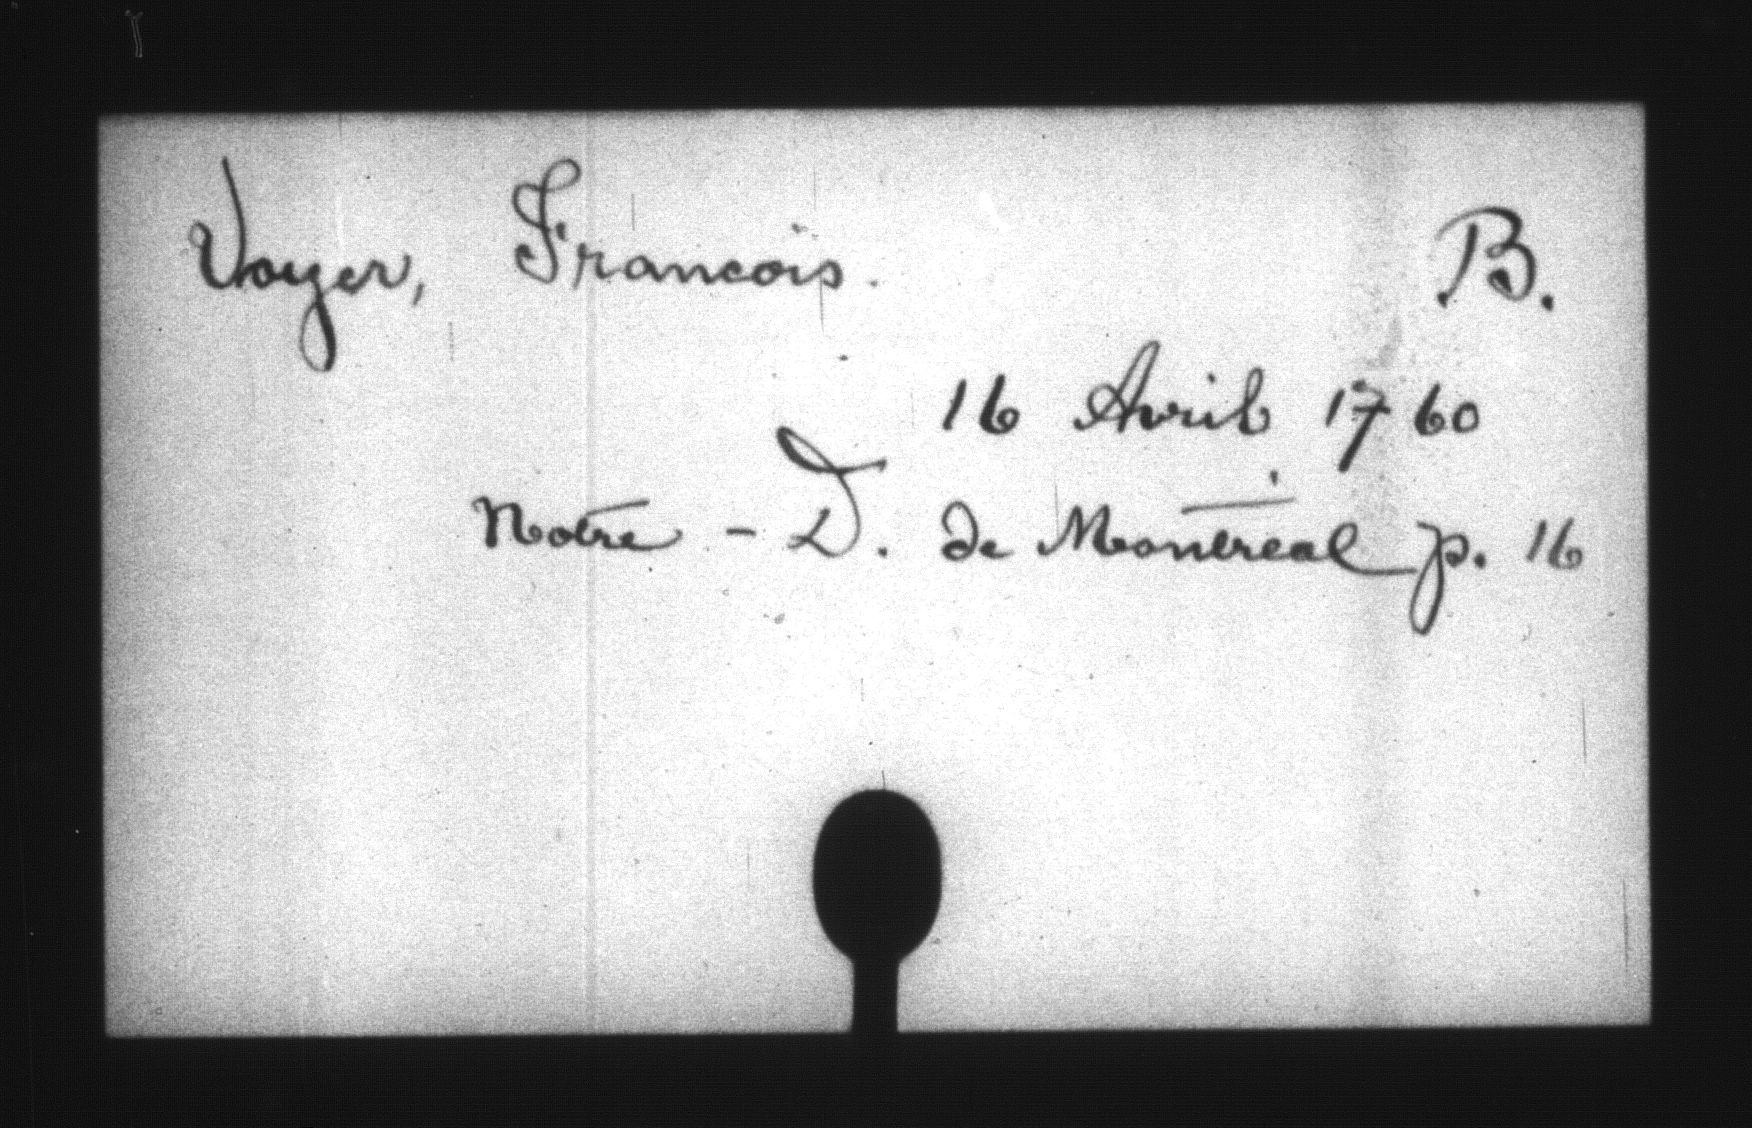 Voyer, Francois. B.
16 Avril 1760
Notre - D. de Montréal p. 16